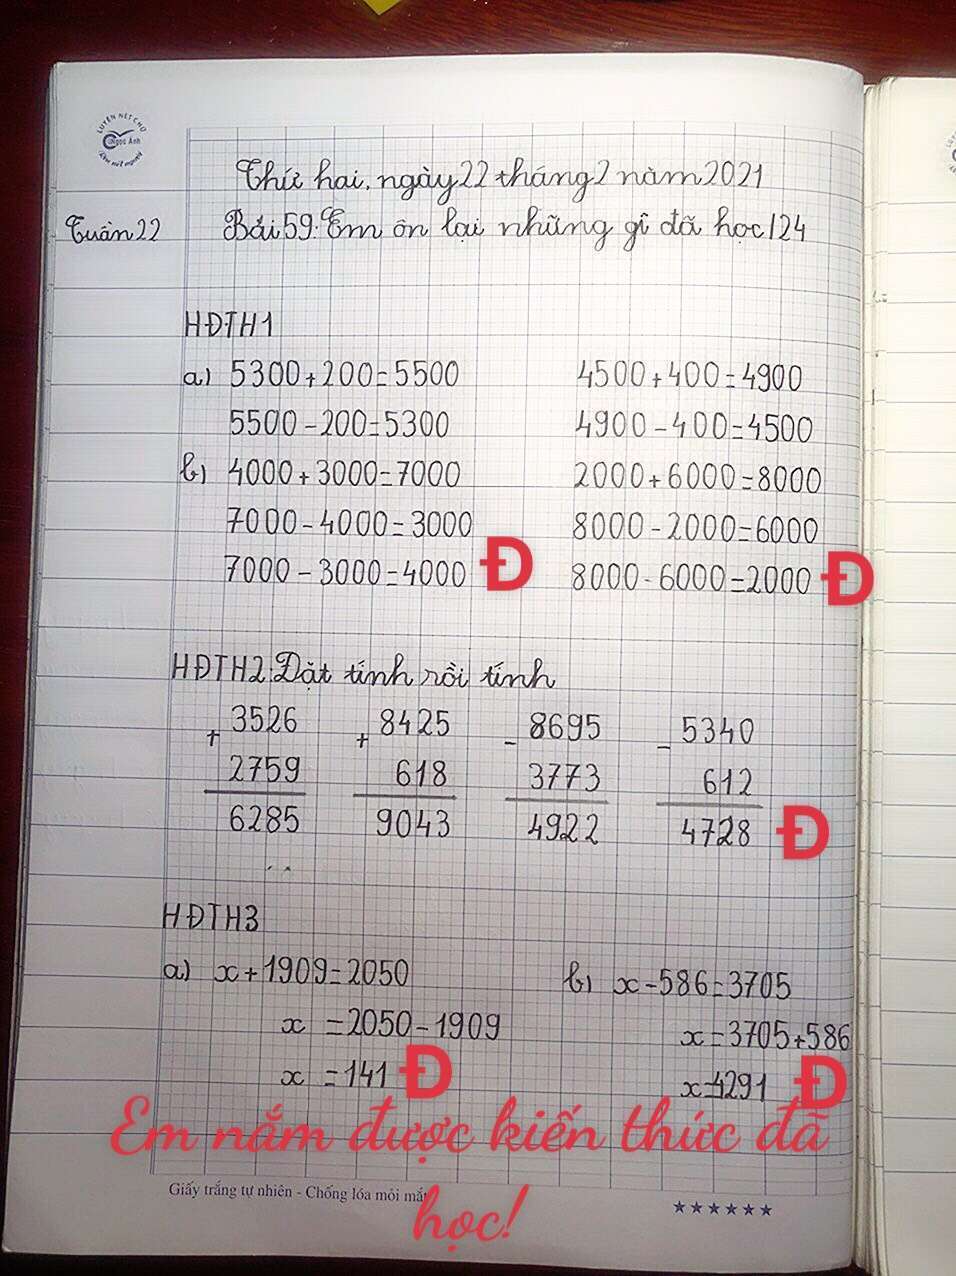 LUYỆN NÉT CHỮ
Ngọc Ánh
Rèn nết người
Thứ hai, ngày 22 tháng 2 năm 2021
Tuần 22
Bài 59: Em ôn lại những gì đã học 124
HĐTH1
a) 5300+200=5500 4500+400=4900
5500-200=5300 4900-400=4500
b) 4000+3000=7000 2000+6000=8000
7000-4000=3000 8000-2000=6000
7000-3000=4000 Đ 8000-6000=2000 Đ
HĐTH2: Đặt tính rồi tính
3526 8425 8695 5340
+ + - -
2759 618 3773 612
6285 9043 4922 4728 Đ
HĐTH3
a) x+1909=2050 b) x-586=3705
x =2050-1909 x=3705+586
x =141 Đ x=4291 Đ
Em nắm được kiến thức đã
học!
Giấy trắng tự nhiên - Chống lóa mỏi mắt